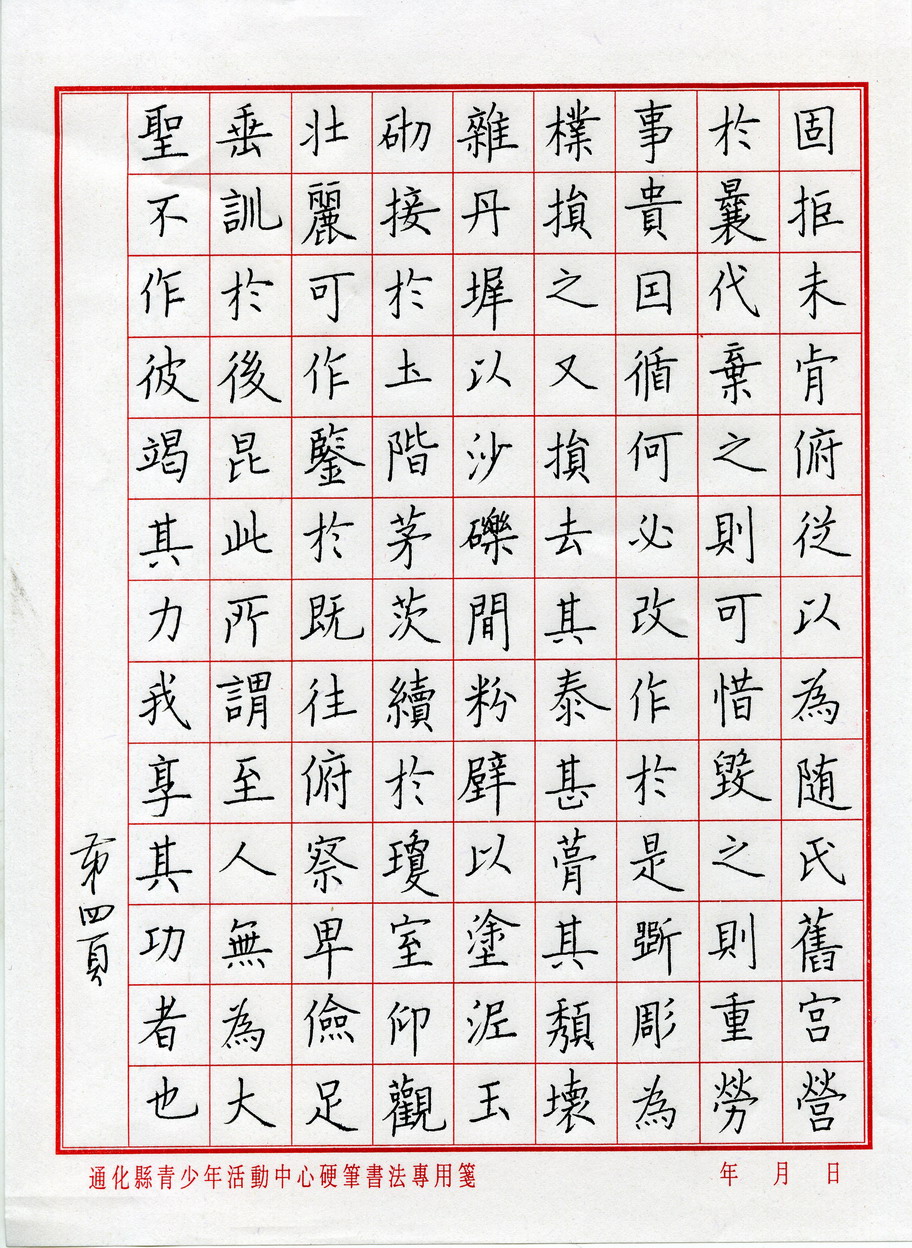 固拒未肯俯從以為随氏舊宮營
於曩代棄之則可惜毀之則重勞
事貴因循何必改作於是斵彫為
樸損之又損去其泰甚葺其頹壞
雜丹墀以沙礫間粉壁以塗泥玉
砌接於土階茅茨續於瓊室仰觀
壯麗可作鑒於既往俯察卑儉足
垂訓於後昆此所謂至人無為大
聖不作彼竭其力我享其功者也
第四頁
通化縣青少年活動中心硬筆書法專用箋
年 月 日